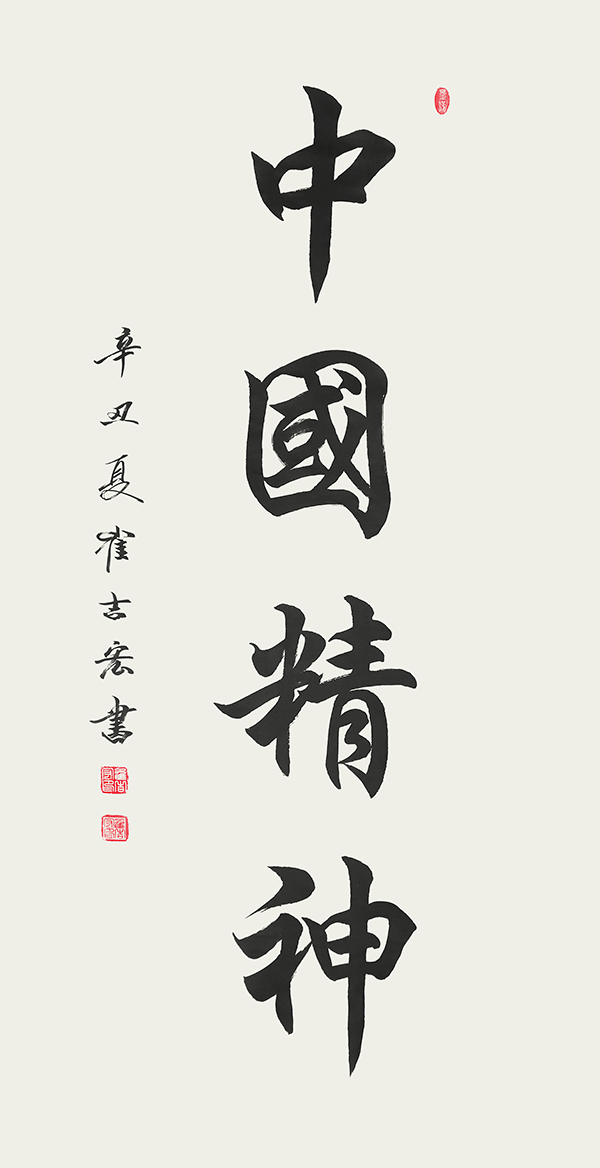 中國精神
辛丑夏崔吉宏書